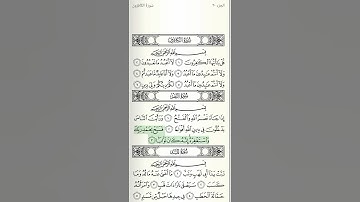 الجزء ٣٠ سورة الكافرون
سُورَةُ الكَافِرُونَ
بِسْمِ اللَّهِ الرَّحْمَٰنِ الرَّحِيمِ
قُلْ يَا أَيُّهَا الْكَافِرُونَ ١ لَا أَعْبُدُ مَا تَعْبُدُونَ ٢
وَلَا أَنتُمْ عَابِدُونَ مَا أَعْبُدُ ٣ وَلَا أَنَا عَابِدٌ مَّا عَبَدتُّمْ ٤
وَلَا أَنتُمْ عَابِدُونَ مَا أَعْبُدُ ٥ لَكُمْ دِينُكُمْ وَلِيَ دِينِ ٦
سُورَةُ النَّصْرِ
بِسْمِ اللَّهِ الرَّحْمَٰنِ الرَّحِيمِ
إِذَا جَاءَ نَصْرُ اللَّهِ وَالْفَتْحُ ١ وَرَأَيْتَ النَّاسَ
يَدْخُلُونَ فِي دِينِ اللَّهِ أَفْوَاجًا ٢ فَسَبِّحْ بِحَمْدِ رَبِّكَ
وَاسْتَغْفِرْهُ إِنَّهُ كَانَ تَوَّابًا ٣
سُورَةُ المَسَدِ
بِسْمِ اللَّهِ الرَّحْمَٰنِ الرَّحِيمِ
تَبَّتْ يَدَا أَبِي لَهَبٍ وَتَبَّ ١ مَا أَغْنَىٰ عَنْهُ مَالُهُ وَمَا
كَسَبَ ٢ سَيَصْلَىٰ نَارًا ذَاتَ لَهَبٍ ٣ وَامْرَأَتُهُ
حَمَّالَةَ الْحَطَبِ ٤ فِي جِيدِهَا حَبْلٌ مِّن مَّسَدٍ ٥